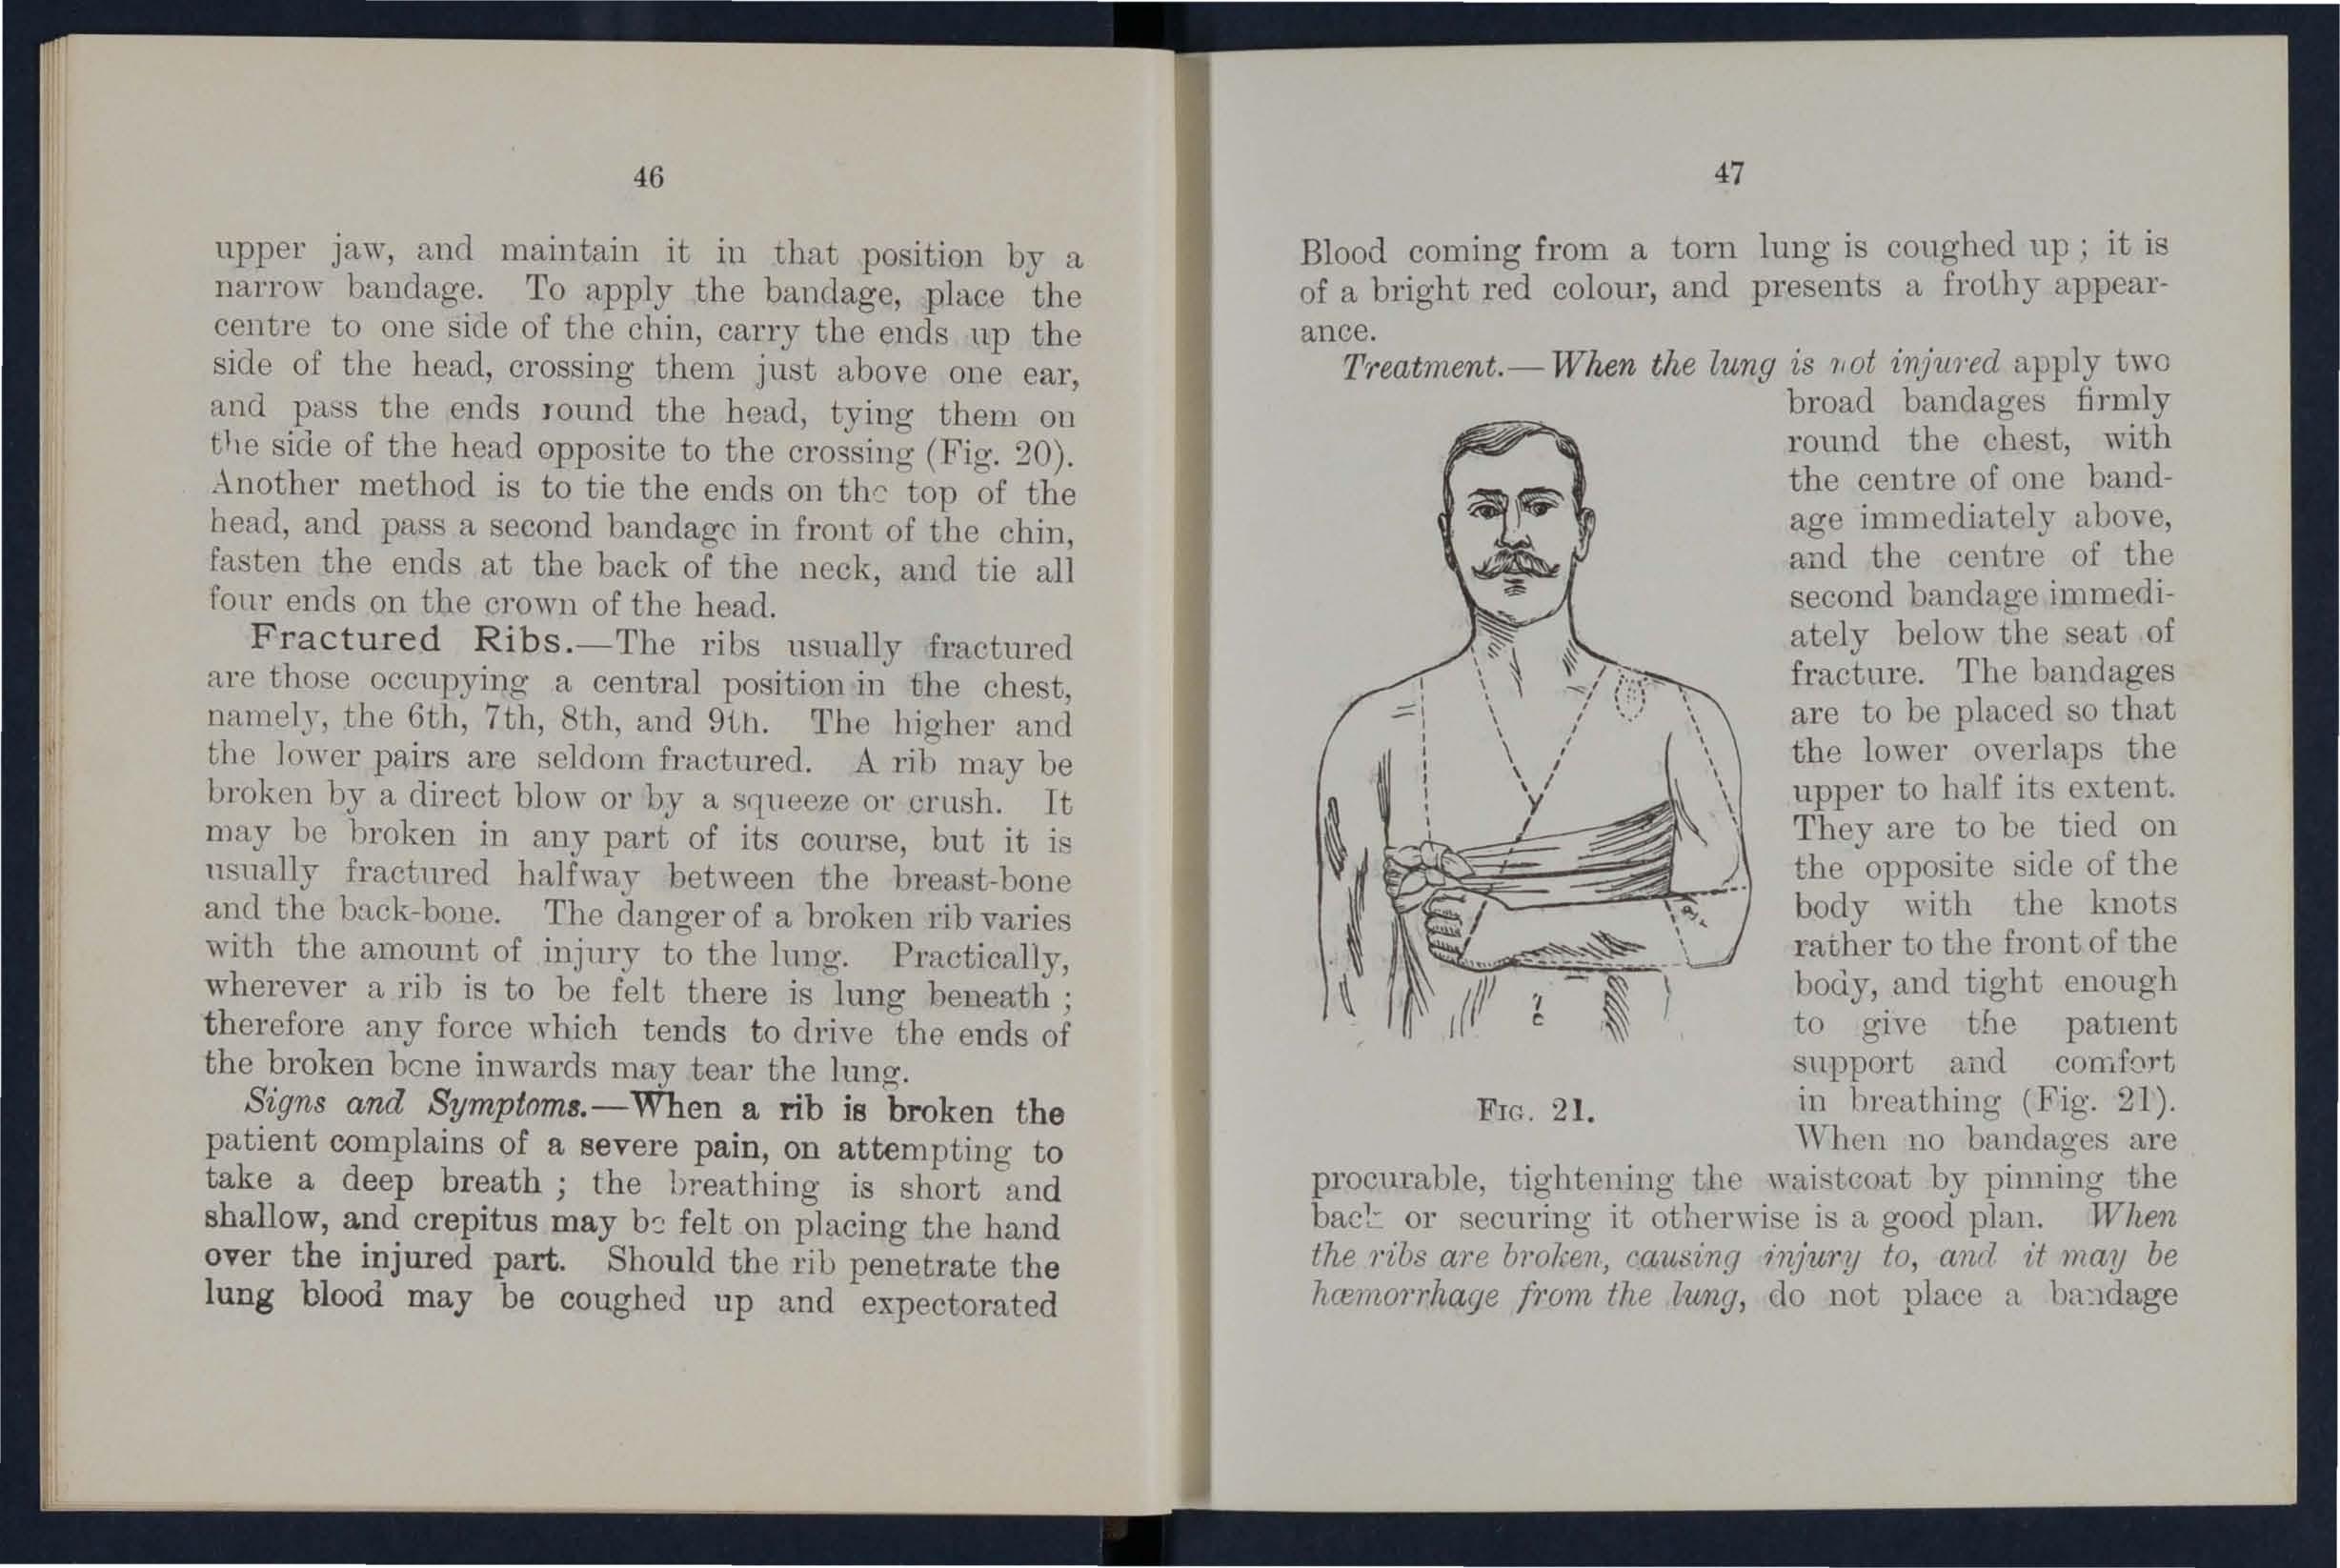 46
upper jaw, and maintain it in that position by a
narrow bandage. To apply the bandage, place the
centre to one side of the chin, carry the ends up the
side of the head, crossing them just above one ear,
and pass the ends round the head, tying them on
the side of the head opposite to the crossing (Fig. 20).
Another method is to tie the ends on the top of the
head, and pass a second bandage in front of the chin,
fasten the ends at the back of the neck, and tie all
four ends on the crown of the head.
Fractured Ribs.—The ribs usually fractured
are those occupying a central position in the chest,
namely, the 6th, 7th, 8th, and 9th. The higher and
the lower pairs are seldom fractured. A rib may be
broken by a direct blow or by a squeeze or crush. It
may be broken in any part of its course, but it is
usually fractured halfway between the breast-bone
and the back-bone. The danger of a broken rib varies
with the amount of injury to the lung. Practically,
wherever a rib is to be felt there is lung beneath ;
therefore any force which tends to drive the ends of
the broken bone inwards may tear the lung.
Signs and Symptoms.—When a rib is broken the
patient complains of a severe pain, on attempting to
take a deep breath ; the breathing is short and
shallow, and crepitus may be felt on placing the hand
over the injured part. Should the rib penetrate the
lung blood may be coughed up and expectorated
47
Blood coming from a torn lung is coughed up ; it is
of a bright red colour, and presents a frothy appear-
ance.
Treatment.—When the lung is not injured apply two
broad bandages firmly
round the chest, with
the centre of one band-
age immediately above,
and the centre of the
second bandage immedi-
ately below the seat of
fracture. The bandages
are to be placed so that
the lower overlaps the
upper to half its extent.
They are to be tied on
the opposite side of the
body with the knots
rather to the front of the
body, and tight enough
to give the patient
support and comfort
in breathing (Fig. 21).
When no bandages are
FIG. 21.
procurable, tightening the waistcoat by pinning the
back or securing it otherwise is a good plan. When
the ribs are broken, causing injury to, and it may be
hæmorrhage from the lung, do not place a bandage